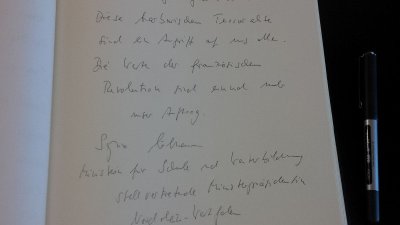 Diese barbarischen Terrorakte
sind ein Angriff auf uns alle.
Die Werte der französischen
Revolution sind einmal mehr
unser Auftrag.
Sylvia Löhrmann
Ministerin für Schule und Weiterbildung
stellvertretende Ministerpräsidentin
Nordrhein-Westfalen